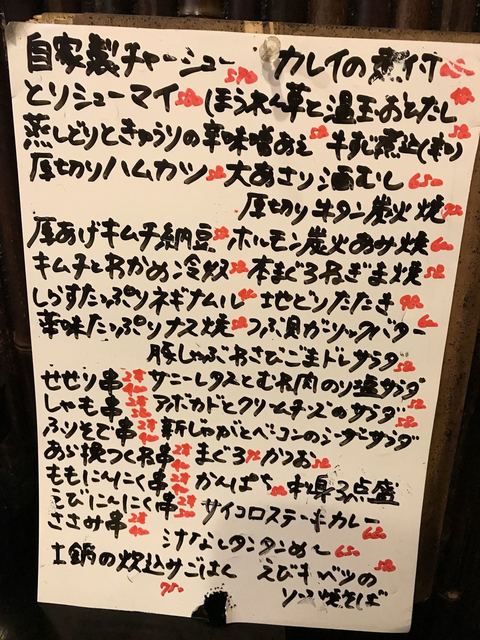 自家製チャーシュー 590 カレイの煮付
とりシューマイ ほうれん草と温玉のおひたし
蒸しどりときゅうりの辛味噌あえ 牛すじ煮込(塩)
厚切りハムカツ 大あさり酒むし 650
厚切り牛タン炭火焼
厚あげキムチ納豆 ホルモン炭火あみ焼
キムチとわかめ冷奴 本まぐろねぎま焼
しらすたっぷりネギナムル 地どりたたき
薬味たっぷりナス焼 つぶ貝ガーリックバター
豚しゃぶわさびごまドレサラダ
せせり串 2本 サニーレタスとむね肉のり塩サラダ
しゃも串 2本 アボカドとクリームチーズのサラダ
ふりそで串 2本 新じゃがとベーコンのシーザーサラダ
あら挽つくね串 2本 まぐろ かつお
ももにんにく串 2本 かんぱち 刺身3点盛
えびにんにく串 2本 サイコロステーキカレー
ささみ串 2本 汁なしタンタンめん 650
土鍋の炊込みごはん 750 えびキャベツの
ソース焼そば